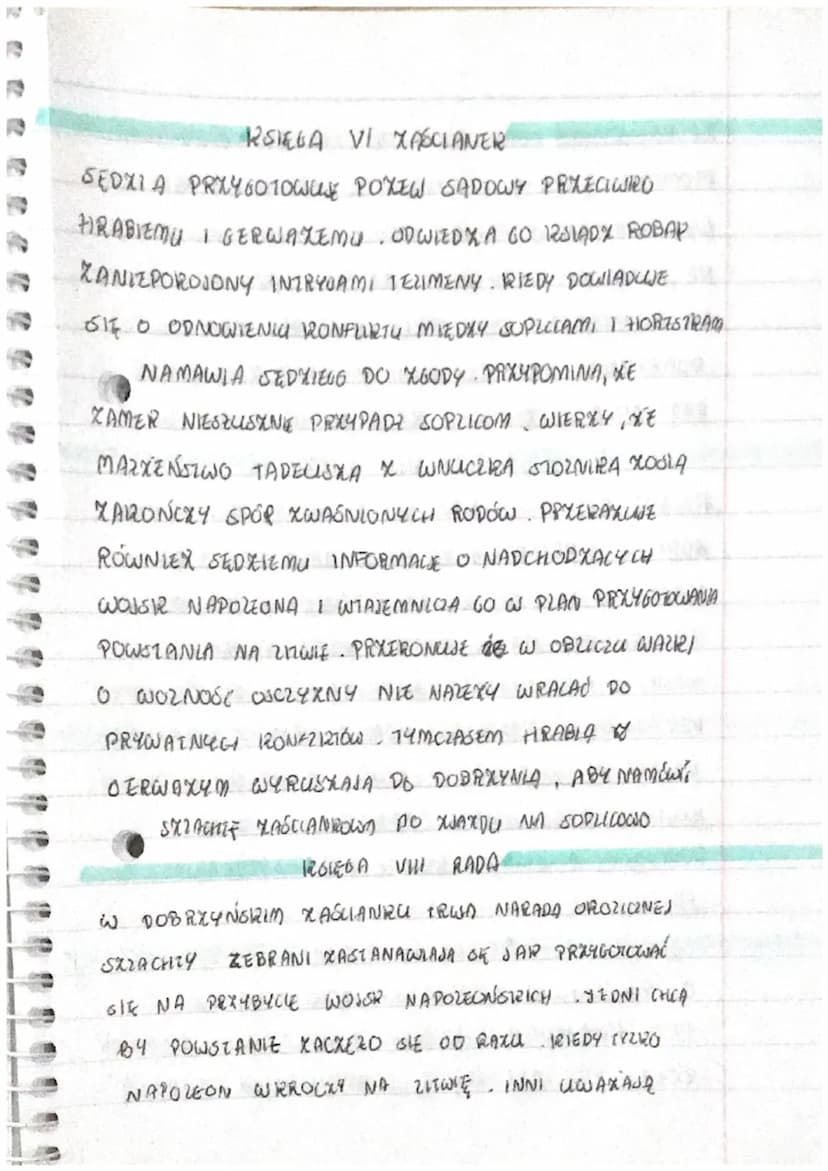 KSIĘGA VI ZAŚCIANEK
SĘDZIA PRZYGOTOWUJE POZEW SĄDOWY PRZECIWKO
HRABIEMU I GERWAZEMU. ODWIEDZA GO KSIĄDZ ROBAK
ZANIEPOKOJONY INTRYGAMI TELIMENY. KIEDY DOWIADUJE
SIĘ O ODNOWIENIU KONFLIKTU MIĘDZY SOPLICAMI I HORESZKAMI
NAMAWIA SĘDZIEGO DO ZGODY. PRZYPOMINA, ŻE
ZAMEK NIESŁUSZNIE PRZYPADŁ SOPLICOM. WIERZY, ŻE
MAŁŻEŃSTWO TADEUSZA Z WNUCZKĄ STOLNIKA ZOSIĄ
ZAKOŃCZY SPÓR ZWAŚNIONYCH RODÓW. PRZEKAZUJE
RÓWNIEŻ SĘDZIEMU INFORMACJE O NADCHODZĄCYCH
WOJSK NAPOLEONA I WTAJEMNICZA GO W PLAN PRZYGOTOWANIA
POWSTANIA NA LITWIE. PRZEKONUJE W OBLICZU WALKI
O WOLNOŚĆ OJCZYZNY NIE NALEŻY WRACAĆ DO
PRYWATNYCH KONFLIKTÓW. TYMCZASEM HRABIA Z
GERWAZYM WYRUSZAJĄ DO DOBRZYNIA, ABY NAMÓWIĆ
SZLACHTĘ ZAŚCIANKOWĄ DO ZJAZDU NA SOPLICOWO
KSIĘGA VIII RADA
W DOBRZYŃSKIM ZAŚCIANKU TRWA NARADA OKOLICZNEJ
SZLACHTY ZEBRANI ZASTANAWIAJĄ SIĘ JAK PRZYGOTOWAĆ
SIĘ NA PRZYBYCIE WOJSK NAPOLEOŃSKICH. JEDNI CHCĄ
BY POWSTANIE ZACZĘŁO SIĘ OD RAZU KIEDY TYLKO
NAPOLEON WKROCZY NA LITWIĘ. INNI UWAŻAJĄ